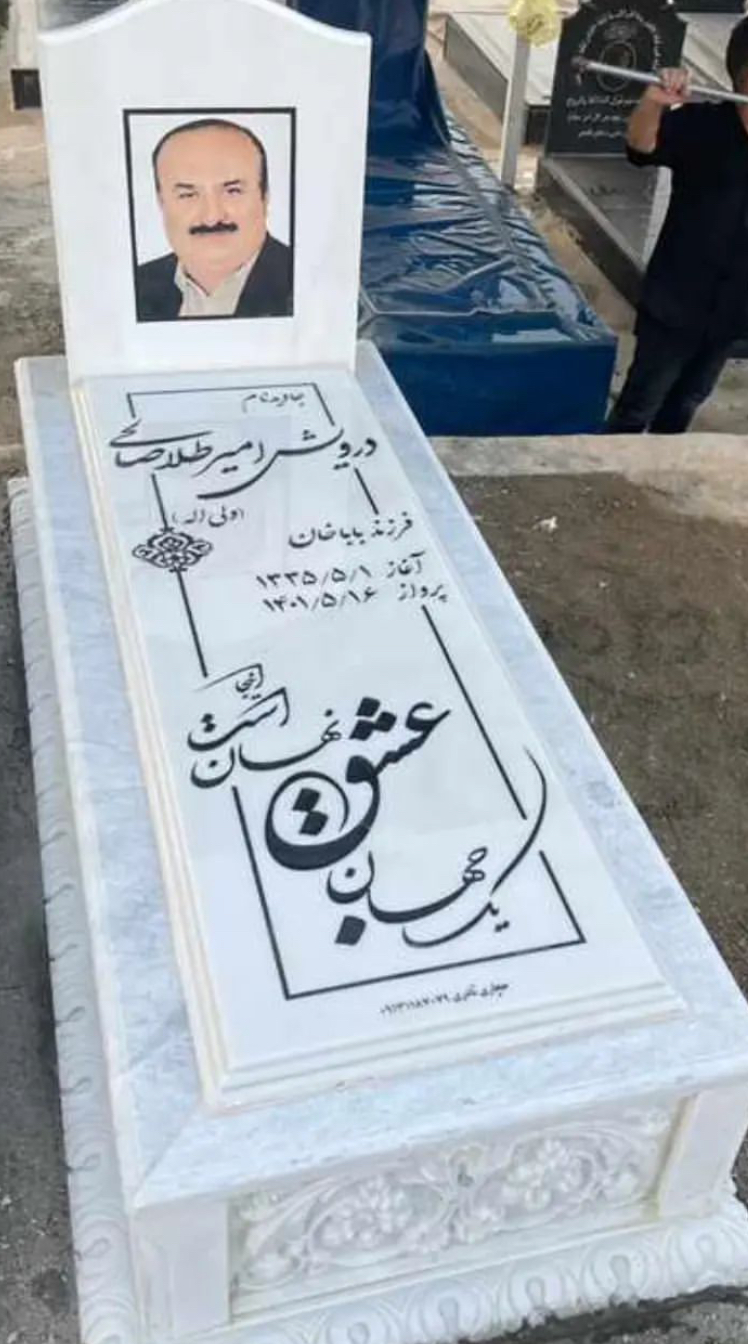 جاویدنام
درویش امیر طلا صالحی
(ولی اله)
فرزند باباخان
آغاز ۱۳۳۵/۵/۱
پرواز ۱۴۰۱/۵/۱۶
یک جهان عشق نهان است اینجا
حجاری نادری